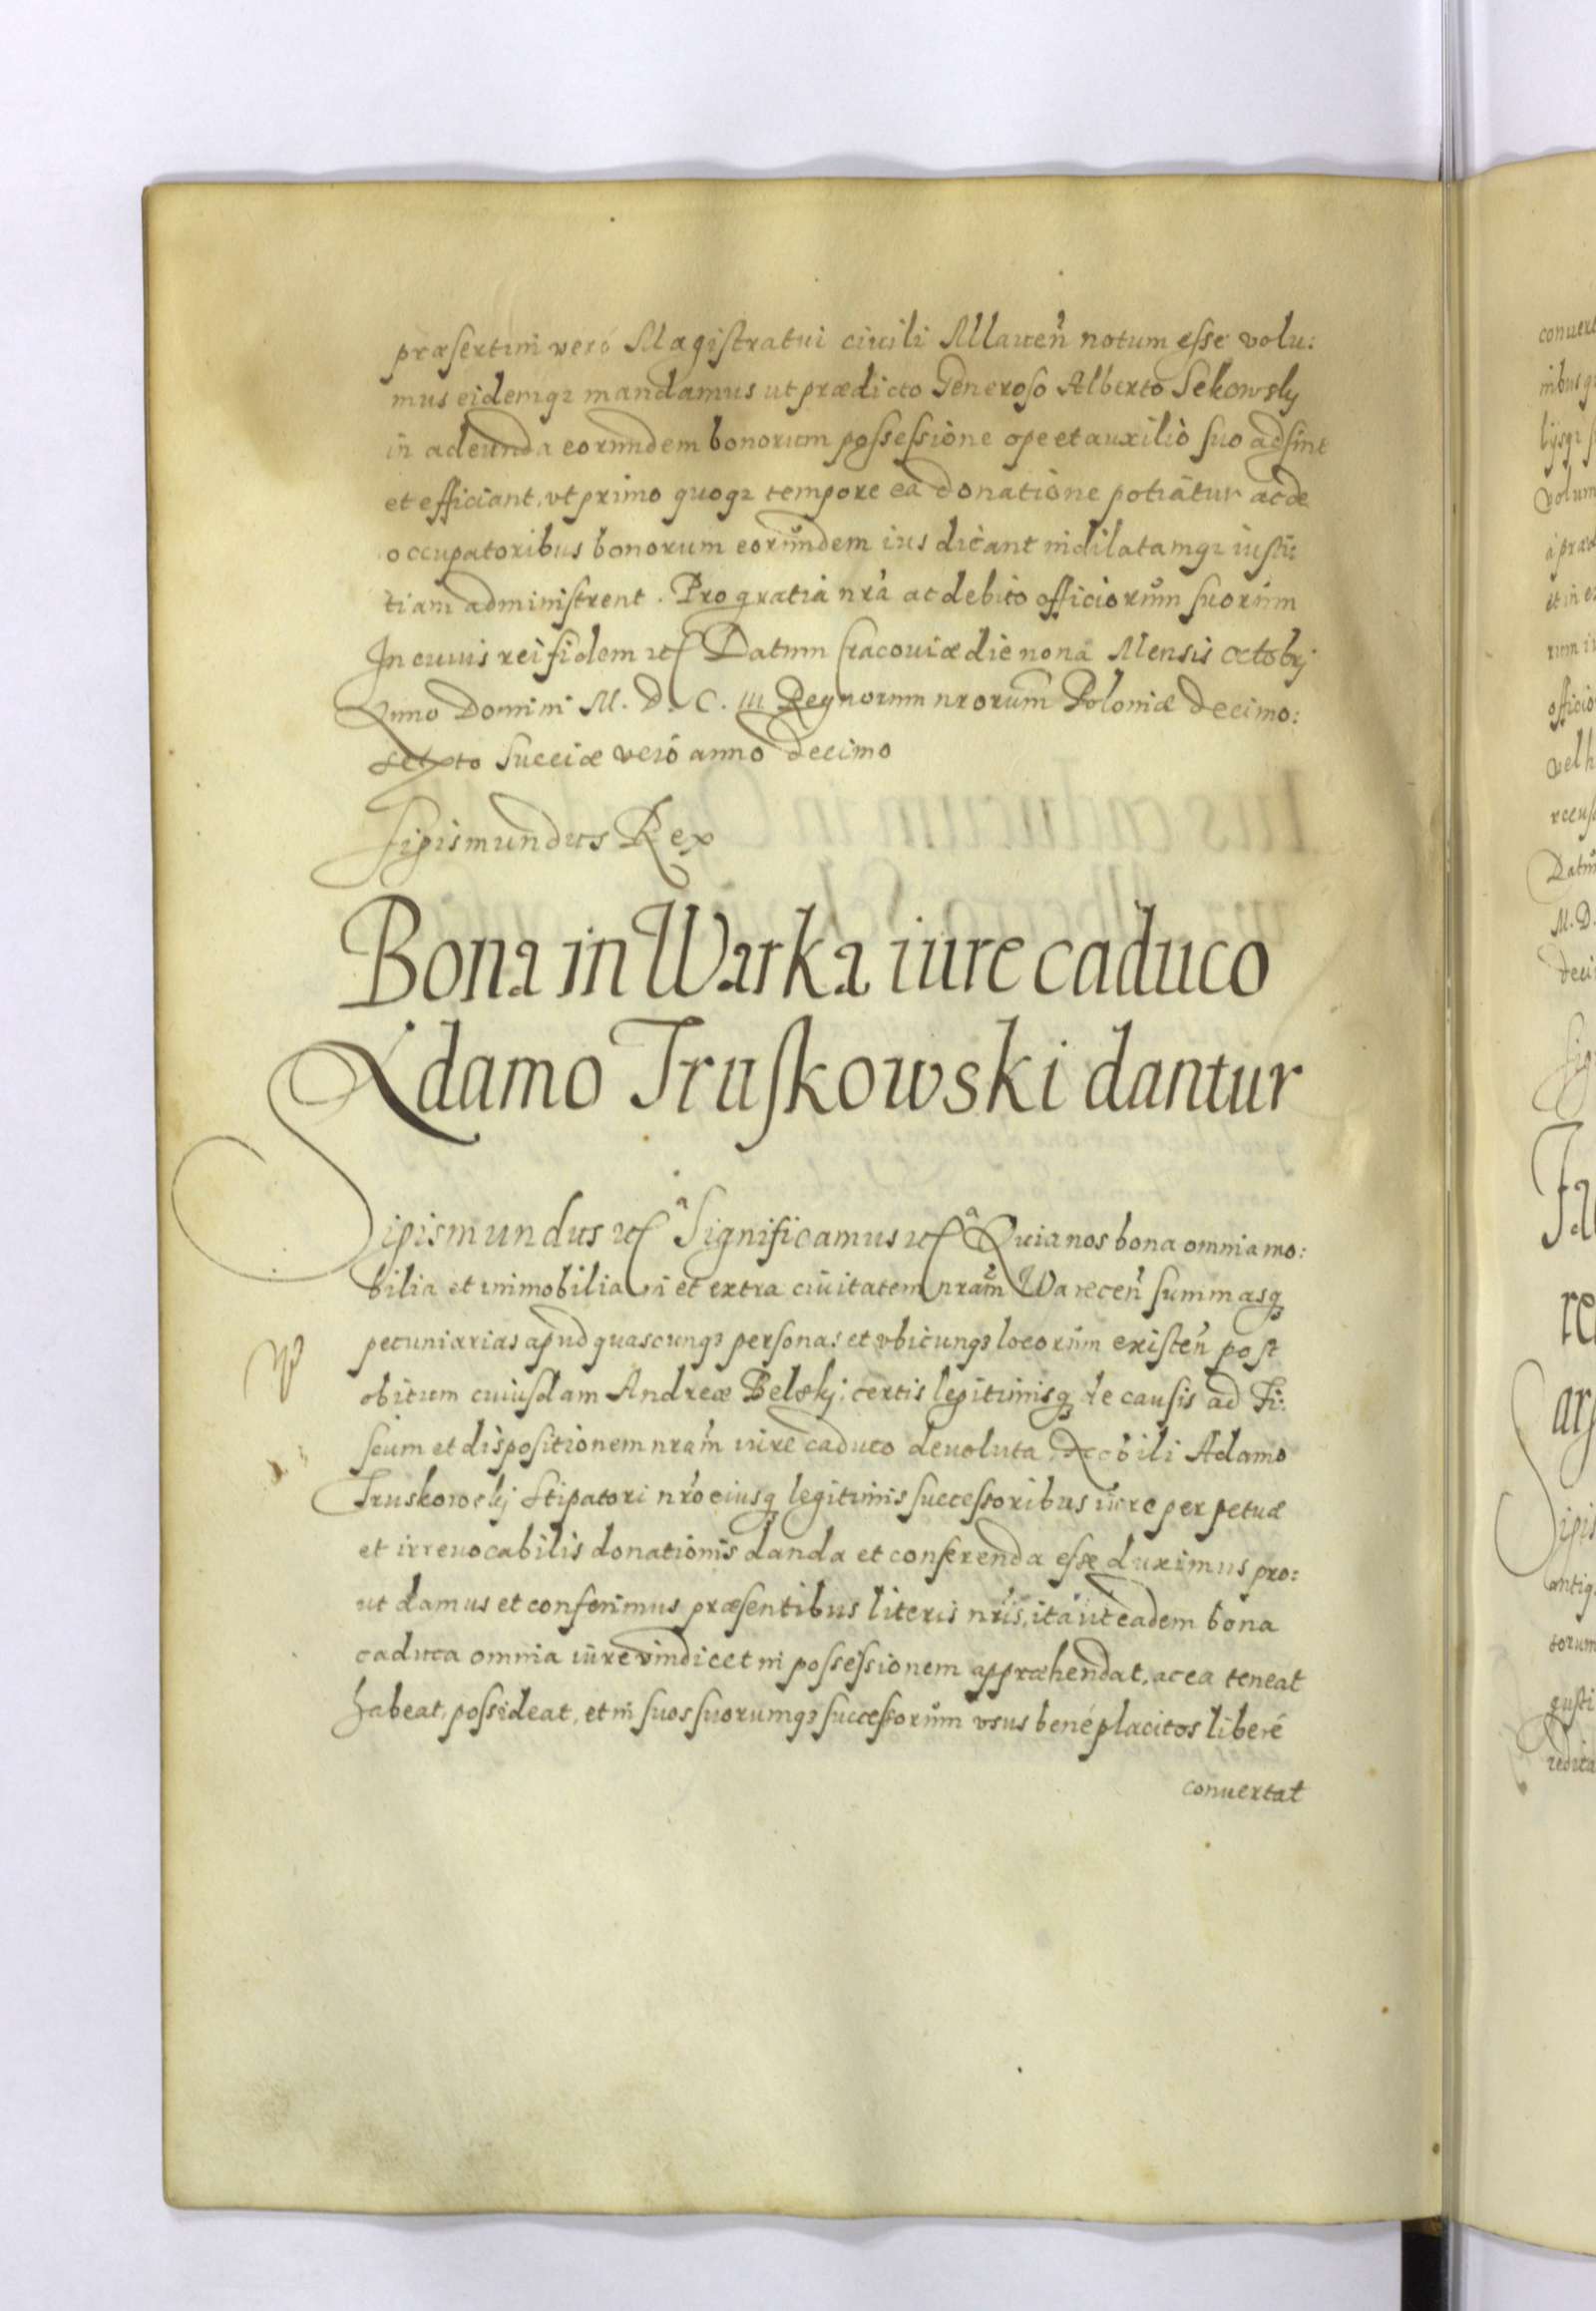 præsertim verò Magistratui ciuili Mlaueñ notum esse volu:
mus eidemqȝ mandamus ut prædicto Generoso Alberto Sekowsky
in adeunda eorundem bonorum possessione ope et auxiliò suo adsint
et efficiant, vt primo quoqȝ tempore ea donatione potiatur ac de
occupatoribus bonorum eorundem ius dicant indilatamqȝ iusti:
tiam administrent. Pro gratia nrã ac debito officiorum suorum
In cuius rei fidem etc Datum Cracouiæ die nona Mensis octobrj
Anno Domini M. D. C. III Regnorum nrorum Poloniæ decimo:
septo Sueciæ verò anno decimo
Sigismundus Rex
Bona in Warka iure caduco
Adamo Truskowski dantur
Sigismundus etc Significamus etc Quia nos bona omnia mo:
bilia et immobilia in et extra ciuitatem nram Wareceñ summasqȝ
pecuniarias apud quascunqȝ personas et vbicunqȝ locorum existeñ post
obitum cuiusdam Andreæ Belskj certis legitimisqȝ de causis ad Fi:
scum et dispositionem nram iure caduco deuoluta, Nobili Adamo
Truskowskj Stipatori nro eiusqȝ legitimis successoribus iure perpetuæ
et irreuocabilis donationis danda et conferenda esse duximus pro:
ut damus et conferimus præsentibus literis nris, ita ut eadem bona
caduca omnia iure vindicet in possessionem appræhendat, ac ea teneat
habeat, possideat, et in suos suorumqȝ successorum vsus beneplacitos liberè
conuertat